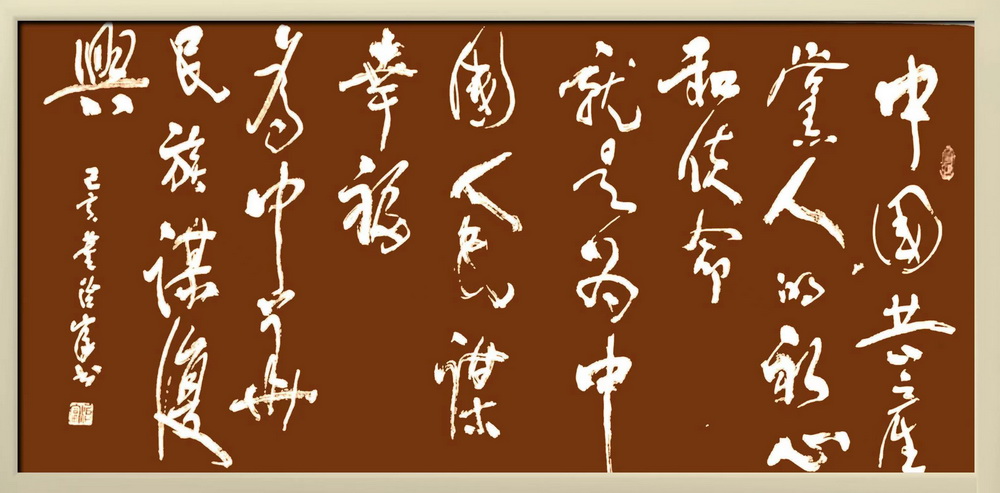 中國共産
黨人的初心
和使命
就是為中
國人民謀
幸福
為中華
民族謀復
興
己亥